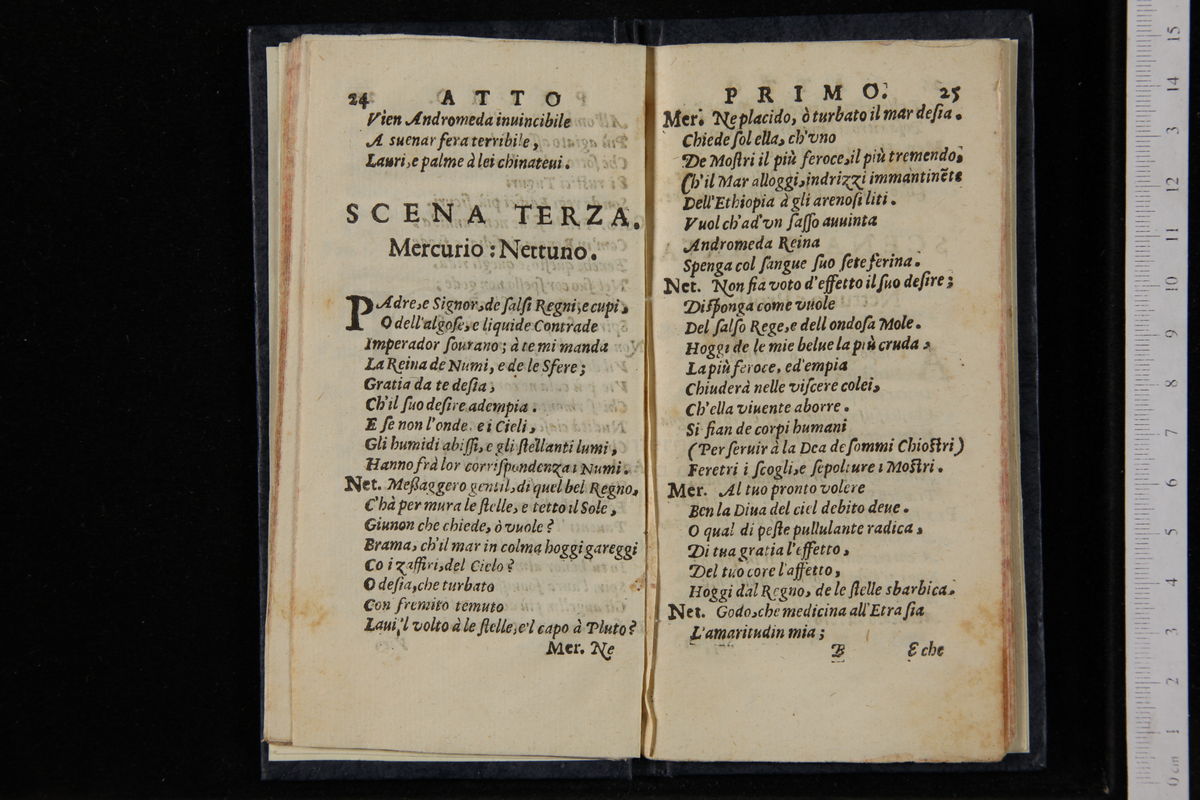 24 ATTO
Vien Andromeda inuincibile
A suenar fera terribile,
Lauri, e palme à lei chinateui.
SCENA TERZA.
Mercurio: Nettuno.
PAdre, e Signor, de salsi Regni, e cupi,
O dell'algose, e liquide Contrade
Imperador sourano; à te mi manda
La Reina de Numi, e de le Sfere;
Gratia da te desia,
Ch'il suo desire adempia.
E se non l'onde, e i Cieli,
Gli humidi abissi, e gli stellanti lumi,
Hanno frà lor corrispondenza i Numi.
Net. Meßaggero gentil, di quel bel Regno,
C'hà per mura le stelle, e tetto il Sole,
Giunon che chiede, ò vuole?
Brama, ch'il mar in colma hoggi gareggi
Co i zaffiri, del Cielo?
O desia, che turbato
Con fremito temuto
Laui 'l volto à le stelle, e'l capo à Pluto?
Mer. Ne
PRIMO. 25
Mer. Ne placido, ò turbato il mar desia.
Chiede sol ella, ch'vno
De Mostri il più feroce, il più tremendo,
Ch'il Mar alloggi, indrizzi immantinẽte
Dell'Ethiopia à gli arenosi liti.
Vuol ch'ad'vn sasso auuinta
Andromeda Reina
Spenga col sangue suo sete ferina.
Net. Non fia voto d'effetto il suo desire;
Disponga come vuole
Del salso Rege, e dell ondosa Mole.
Hoggi de le mie belue la più cruda,
La più feroce, ed'empia
Chiuderà nelle viscere colei,
Ch'ella viuente aborre.
Si fian de corpi humani
(Per seruir à la Dea de sommi Chiostri)
Feretri i scogli, e sepolture i Mostri.
Mer. Al tuo pronto volere
Ben la Diua del ciel debito deue.
O qual di peste pullulante radica,
Di tua gratia l'effetto,
Del tuo core l'affetto,
Hoggi dal Regno, de le stelle sbarbica.
Net. Godo, che medicina all'Etra sia
L'amaritudin mia;
B E che